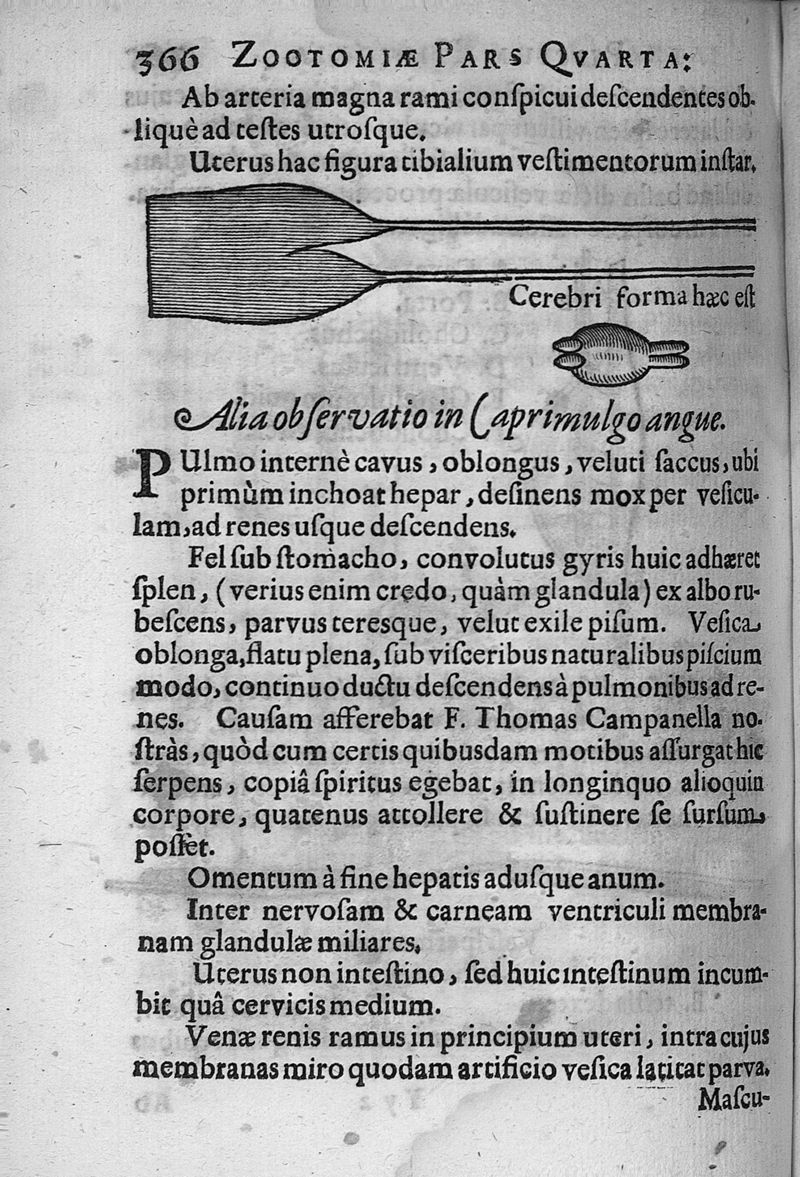 366 ZOOTOMIÆ PARS QVARTA:
Ab arteria magna rami conſpicui deſcendentes ob-
liquè ad teſtes utroſque.
Uterus hac figura tibialium veſtimentorum inſtar.
Cerebri forma hæc eſt
Alia obſervatio in Caprimulgo angue.
PUlmo internè cavus, oblongus, veluti ſaccus, ubi
primùm inchoat hepar, deſinens mox per veſicu-
lam, ad renes uſque deſcendens.
Fel ſub ſtomacho, convolutus gyris huic adhæret
ſplen, (verius enim credo, quàm glandula) ex albo ru-
beſcens, parvus teresque, velut exile piſum. Veſica
oblonga, flatu plena, ſub viſceribus naturalibus piſcium
modo, continuo ductu deſcendens à pulmonibus ad re-
nes. Cauſam afferebat F. Thomas Campanella no-
ſtràs, quòd cum certis quibusdam motibus aſſurgat hic
ſerpens, copiâ ſpiritus egebat, in longinquo alioquin
corpore, quatenus attollere & ſuſtinere ſe ſurſum,
poſſet.
Omentum à fine hepatis aduſque anum.
Inter nervoſam & carneam ventriculi membra-
nam glandulæ miliares.
Uterus non inteſtino, ſed huic inteſtinum incum-
bit quâ cervicis medium.
Venæ renis ramus in principium uteri, intra cujus
membranas miro quodam artificio veſica latitat parva.
Maſcu-